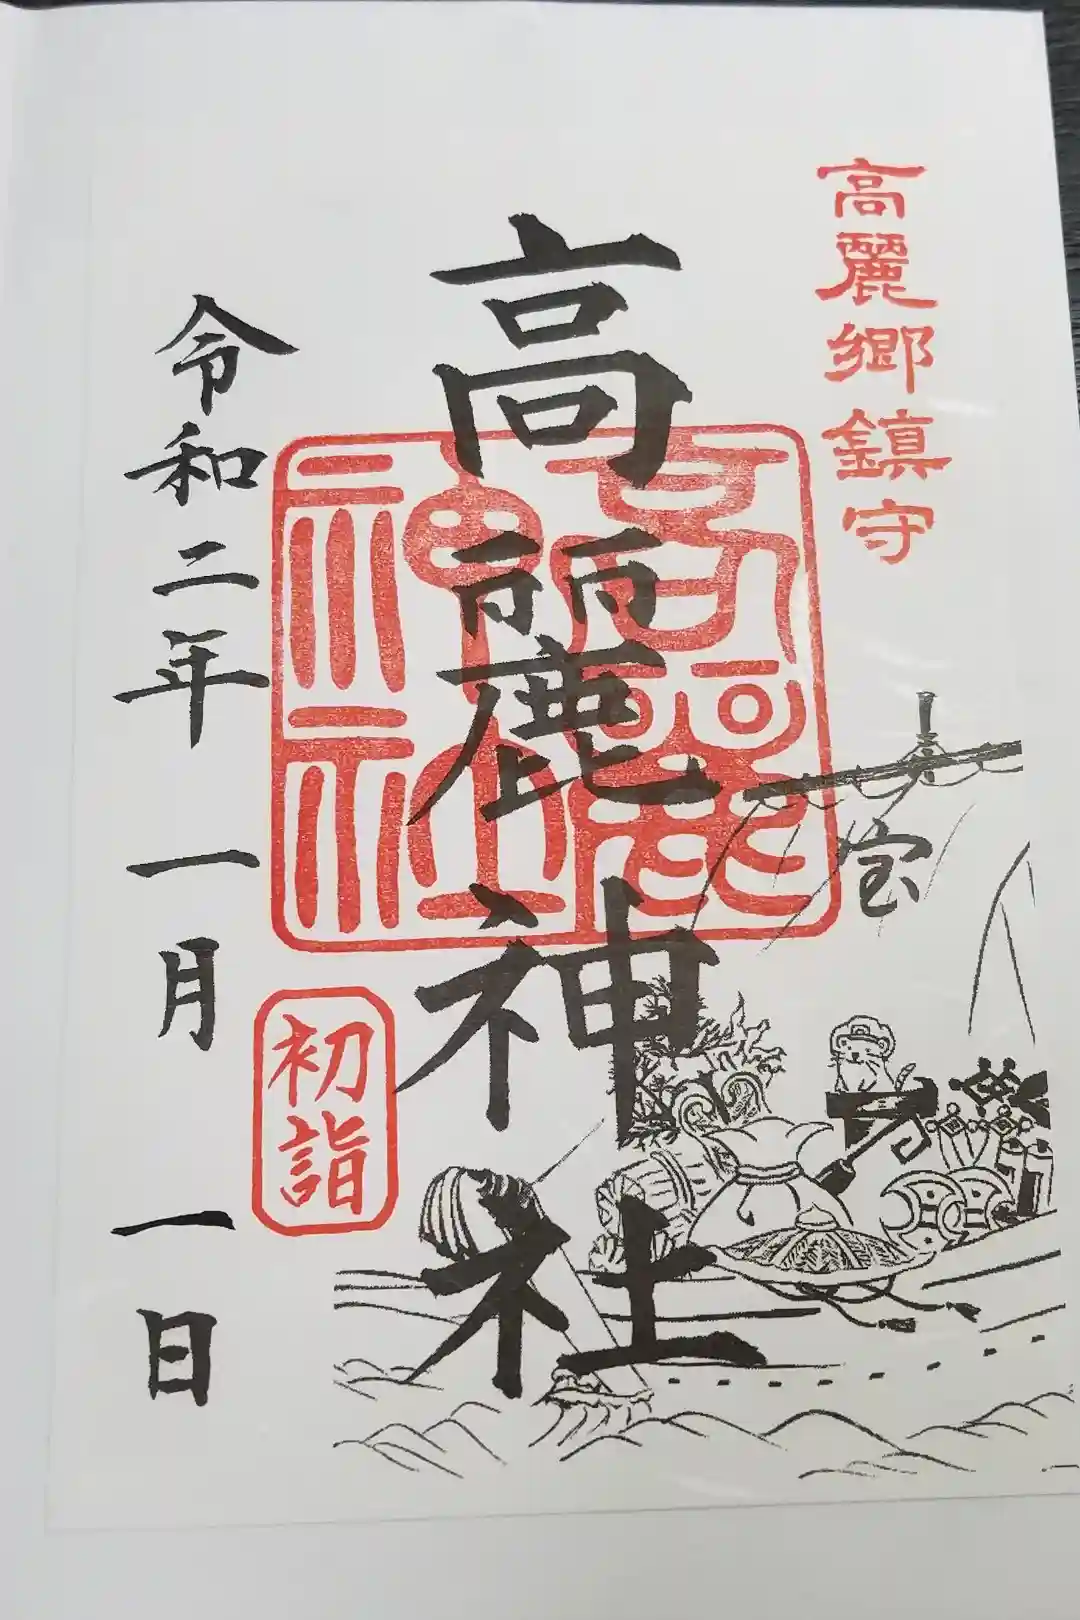 高麗郷鎮守
宝
高麗神社
高麗神社
初詣
令和二年一月一日